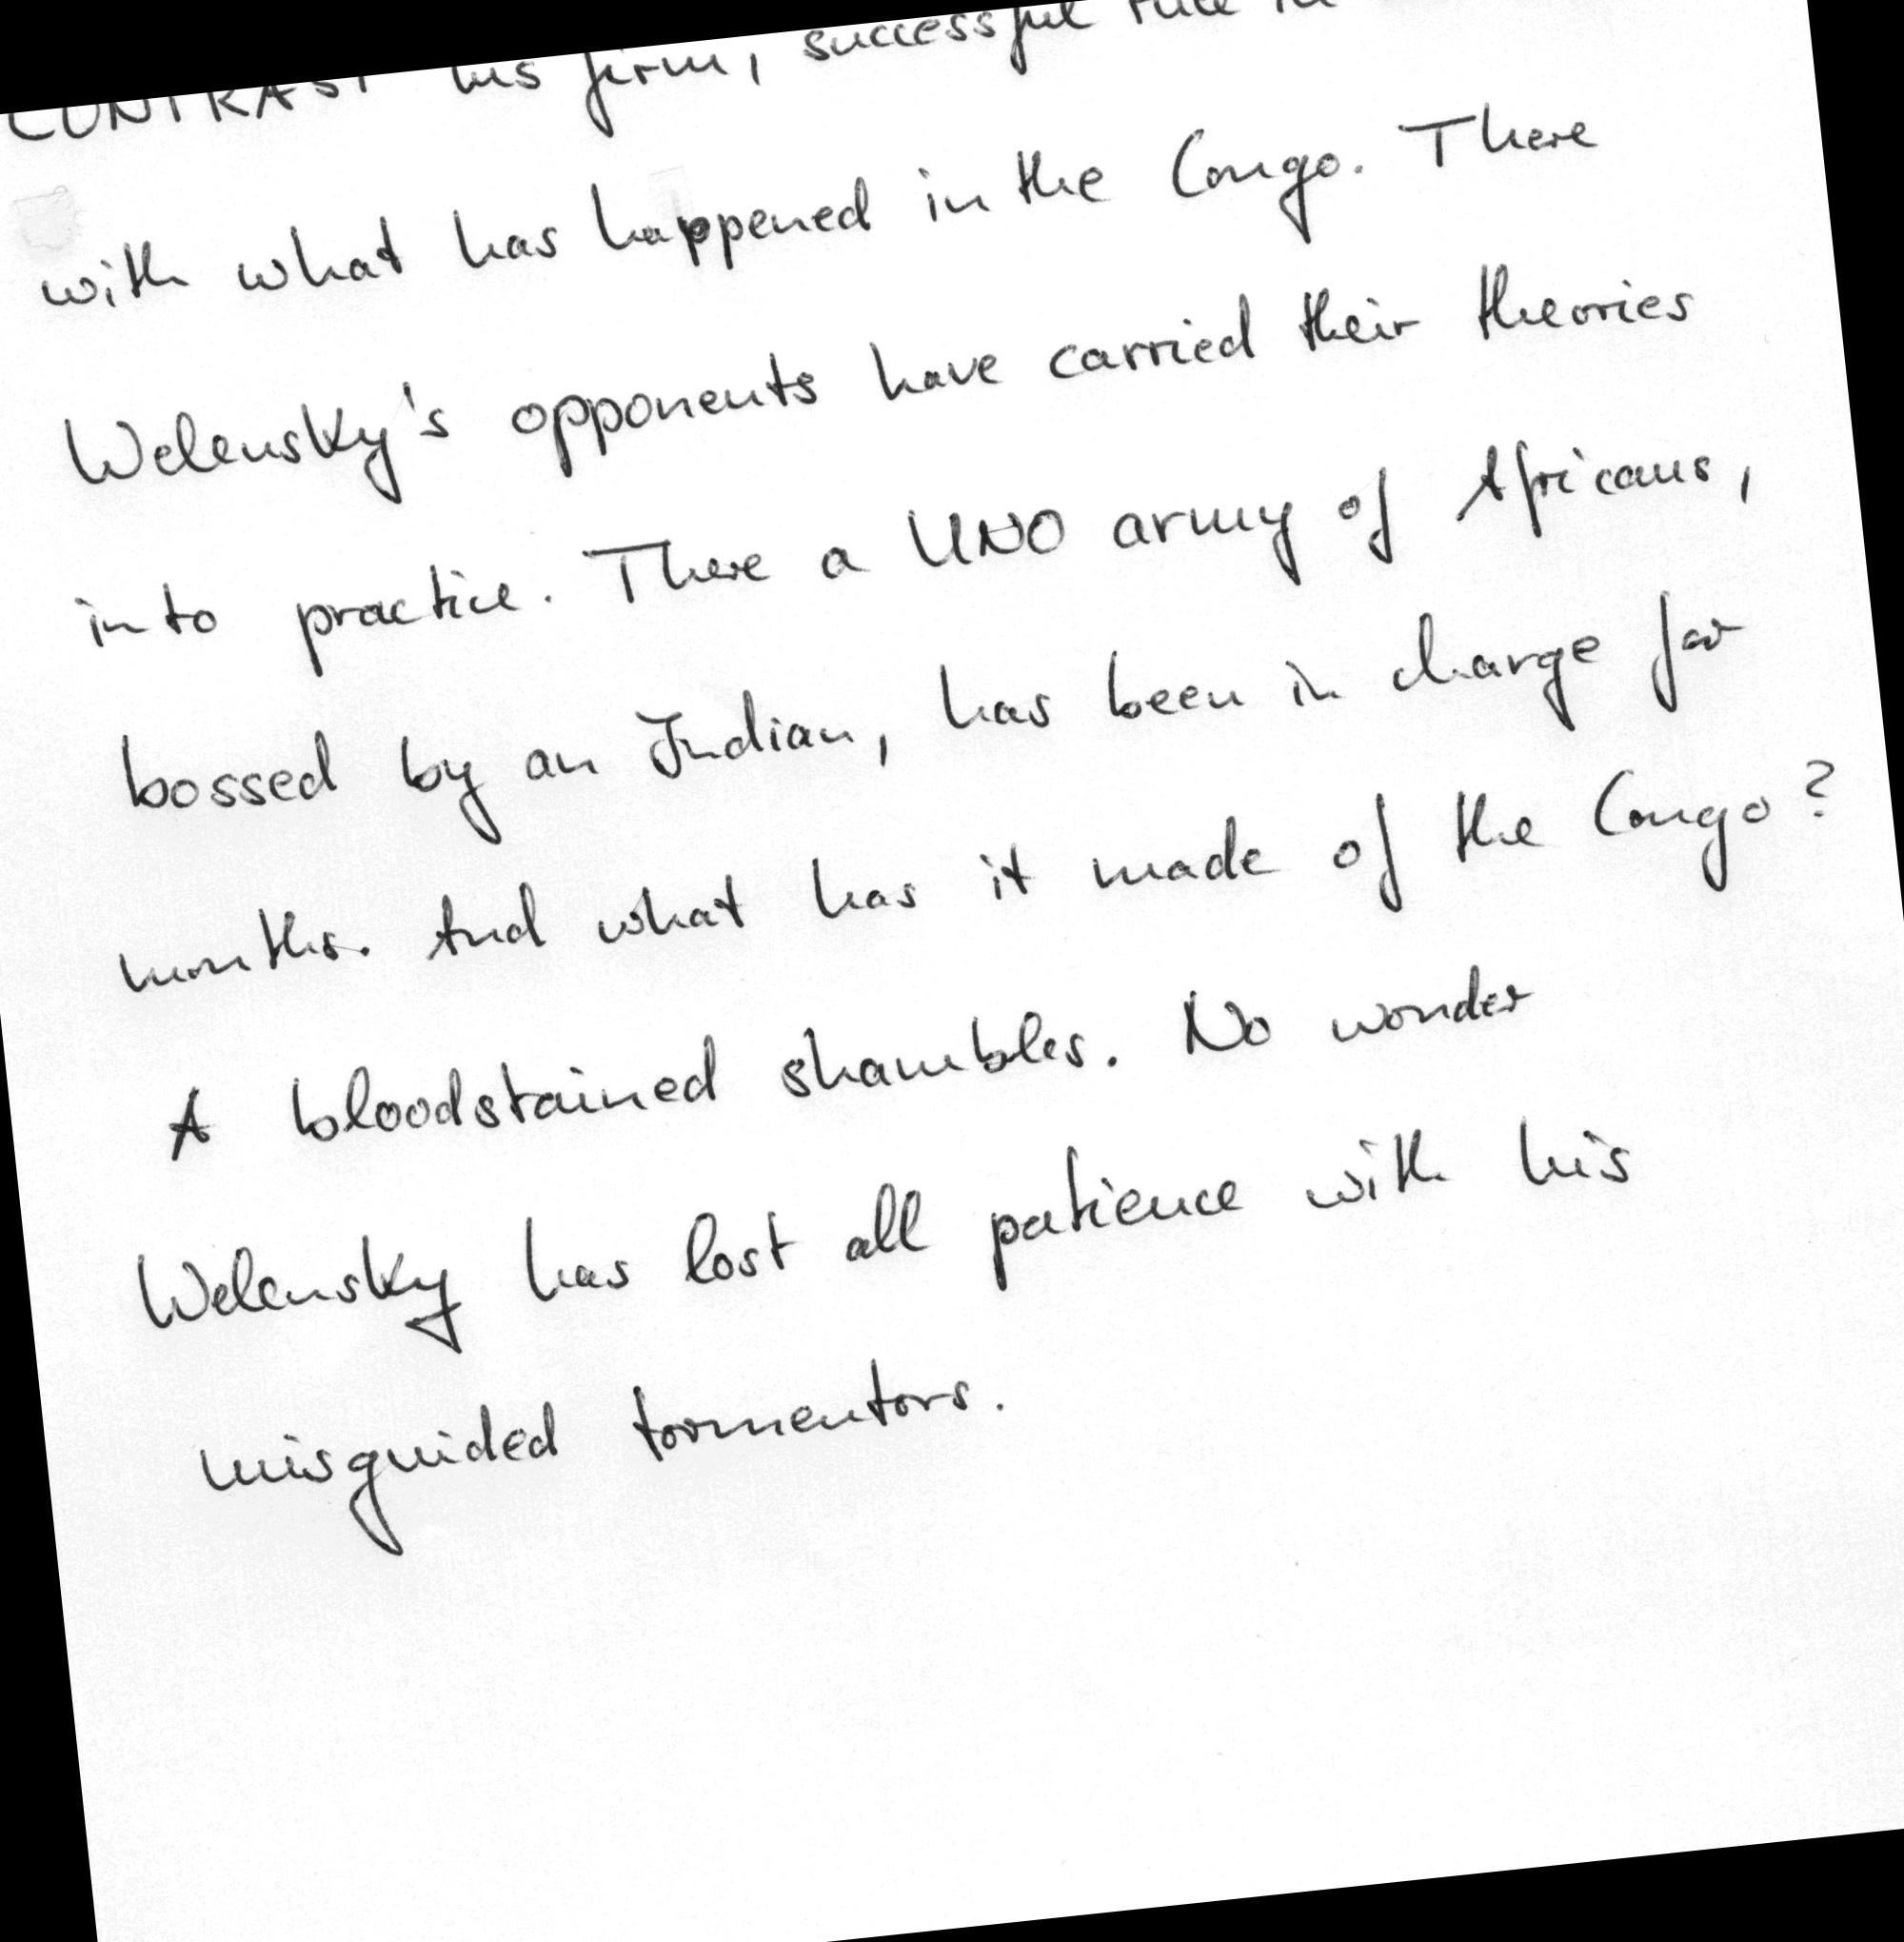 CONTRAST his firm, successful rule in
with what has happened in the Congo. There
Welensky's opponents have carried their theories
into practice. There a UNO army of Africans,
bossed by an Indian, has been in charge for
months. And what has it made of the Congo?
A bloodstained shambles. No wonder
Welensky has lost all patience with his
misguided tormentors.